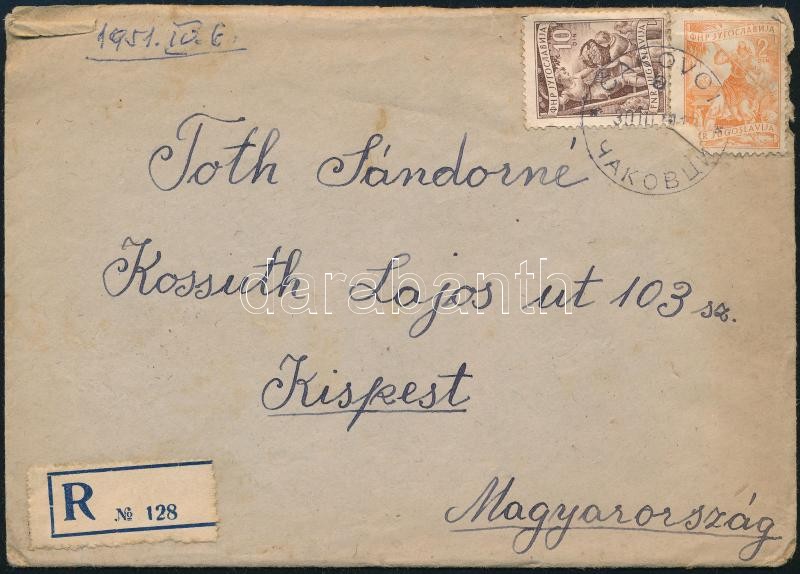 1951. IV. 6.
10 DIN
ФНР ЈУГОСЛАВИЈА
FNR JUGOSLAVIJA
2 DIN
ФНР ЈУГОСЛАВИЈА
FNR JUGOSLAVIJA
ČAKOVCI
ЧАКОВЦИ
Toth Sándorné
Kossuth Lajos ut 103 sz.
darabanth
Kispest
R № 128
Magyarország